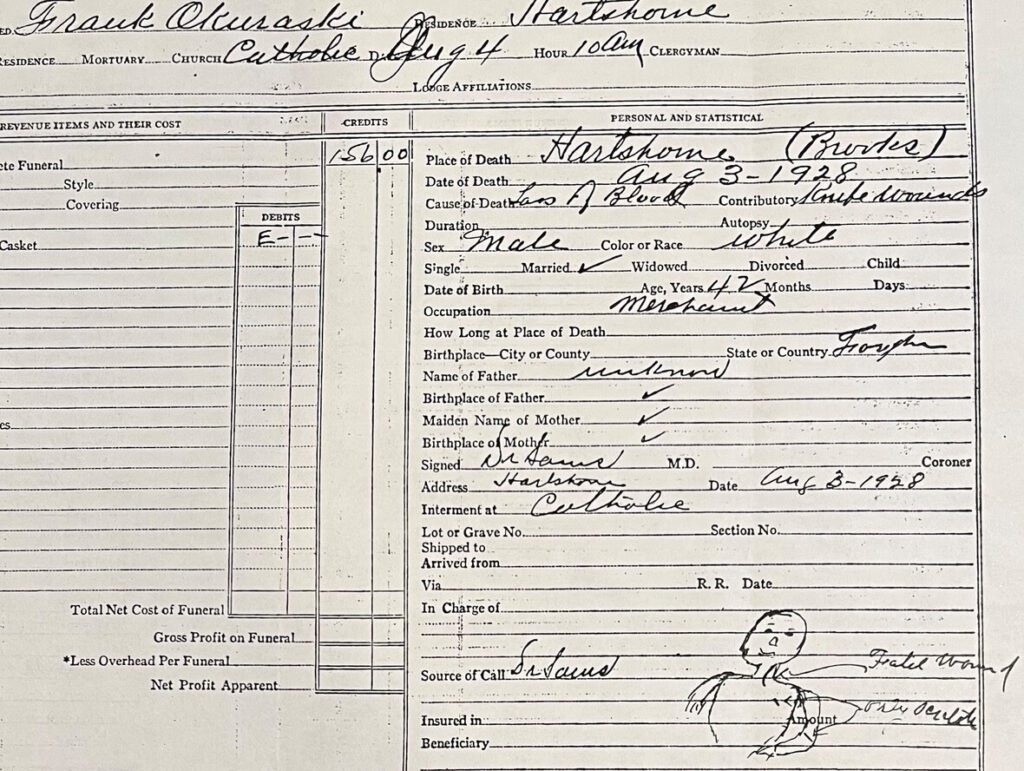 ED. Frank Okuraski RESIDENCE Hartshorne
RESIDENCE MORTUARY CHURCH Catholic D Aug 4 HOUR 10 am CLERGYMAN
LODGE AFFILIATIONS
REVENUE ITEMS AND THEIR COST CREDITS PERSONAL AND STATISTICAL
ete Funeral 156 00
Style
Covering
DEBITS
Casket E
es
Total Net Cost of Funeral
Gross Profit on Funeral
*Less Overhead Per Funeral
Net Profit Apparent
Place of Death Hartshorne (Brooks)
Date of Death Aug 3-1928
Cause of Death Loss of Blood Contributory Knife Wounds
Duration Autopsy
Sex Male Color or Race White
Single Married ✓ Widowed Divorced Child
Date of Birth Age, Years 42 Months Days
Occupation Merchant
How Long at Place of Death
Birthplace—City or County State or Country
Name of Father unknown
Birthplace of Father ✓
Maiden Name of Mother ✓
Birthplace of Mother ✓
Signed Dr Sams M.D. Coroner
Address Hartshorne Date Aug 3-1928
Interment at Catholic
Lot or Grave No. Section No.
Shipped to
Arrived from
Via R. R. Date
In Charge of
Source of Call Dr Sams
Fatal Wound
Insured in Amount only
Beneficiary